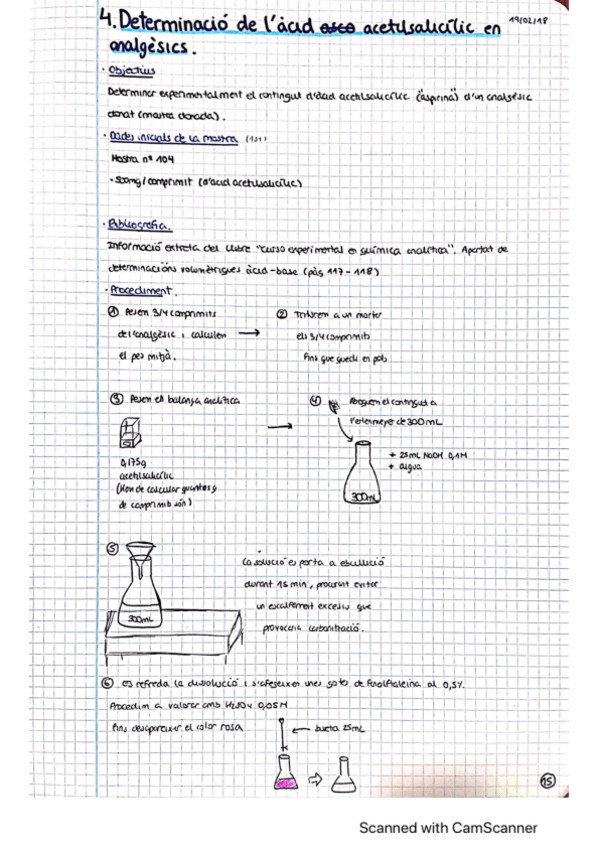 4. Determinació de l'àcid acetilsalicílic en
19/02/18
analgèsics.
· Objectius
Determinar experimentalment el contingut d'àcid acetilsalicílic ("aspirina") d'un analgèsic
donat (mostra donada).
· Dades inicials de la mostra (104)
Mostra nº 104
- 500mg/comprimit (d'àcid acetilsalicílic)
· Bibliografia.
Informació extreta del llibre "curso experimental en química analítica". Apartat de
determinacions volumètriques àcid-base (pàg 117-118)
· Procediment.
① Pesem 3/4 comprimits
de l'analgèsic i calculem
el pes mitjà.
② Triturem a un morter
els 3/4 comprimits
fins que quedi en pols
③ Pesem en balança analítica
0,175g
acetilsalicílic
(Hem de calcular quants g
de comprimits són)
④ Recollim el contingut a
l'erlenmeyer de 300mL
+ 25mL NaOH 0,1M
+ aigua
300mL
⑤ La solució es porta a ebullició
durant 15 min, procurant evitar
un escalfament excessiu que
provocaria carbonatació.
300mL
⑥ es refreda la dissolució i s'afegeixen unes gotes de fenolftaleïna al 0,5%.
Procedim a valorar amb H₂SO₄ 0,05M
fins desaparèixer el color rosa
bureta 25mL
15
Scanned with CamScanner